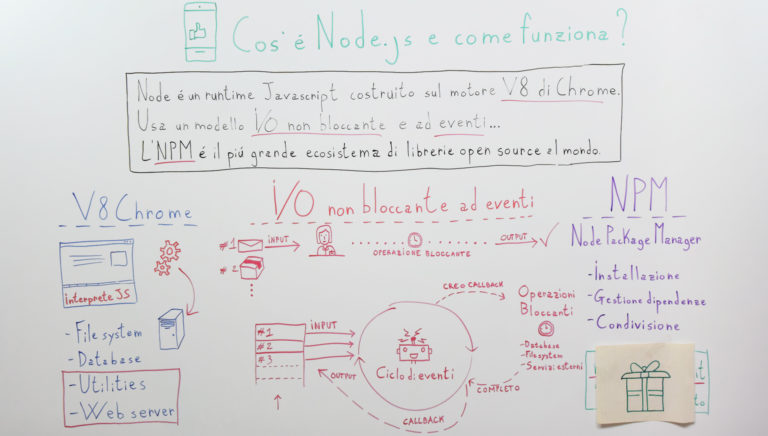 Cos'é Node.js e come funziona?
Node é un runtime Javascript costruito sul motore V8 di Chrome.
Usa un modello I/O non bloccante e ad eventi...
L'NPM é il piú grande ecosistema di librerie open source al mondo.
V8 Chrome
interprete JS
- File system
- Database
- Utilities
- Web server
I/O non bloccante ad eventi
#1
INPUT
OPERAZIONE BLOCCANTE
OUTPUT
#2
#1
#2
#3
INPUT
OUTPUT
Ciclo di eventi
CREO CALLBACK
Operazioni
Bloccanti
- Database
- Filesystem
- Servizi esterni
COMPLETO
CALLBACK
NPM
Node Package Manager
- Installazione
- Gestione dipendenze
- Condivisione